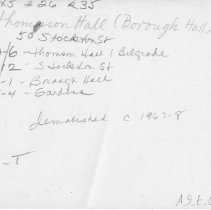 45 #26 R35
Thompson Hall (Borough Hall)
50 Stockton St
-6 - Thomson Hall / Belgrade
-12 - Stockton St
-1 - Borough Hall
-4 - Gardens
Demolished c 1967-8
-T